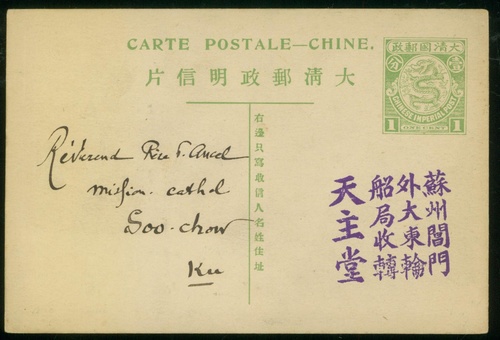 CARTE POSTALE—CHINE.
片信明政郵清大
政郵國清大
分 壹
CHINESE IMPERIAL POST
1 ONE CENT 1
右邊只寫收信人名姓住址
Révérend Père
mission. cathol
Soo-chow
Ku
蘇州閶門
外大東輪
船局收轉
天主堂